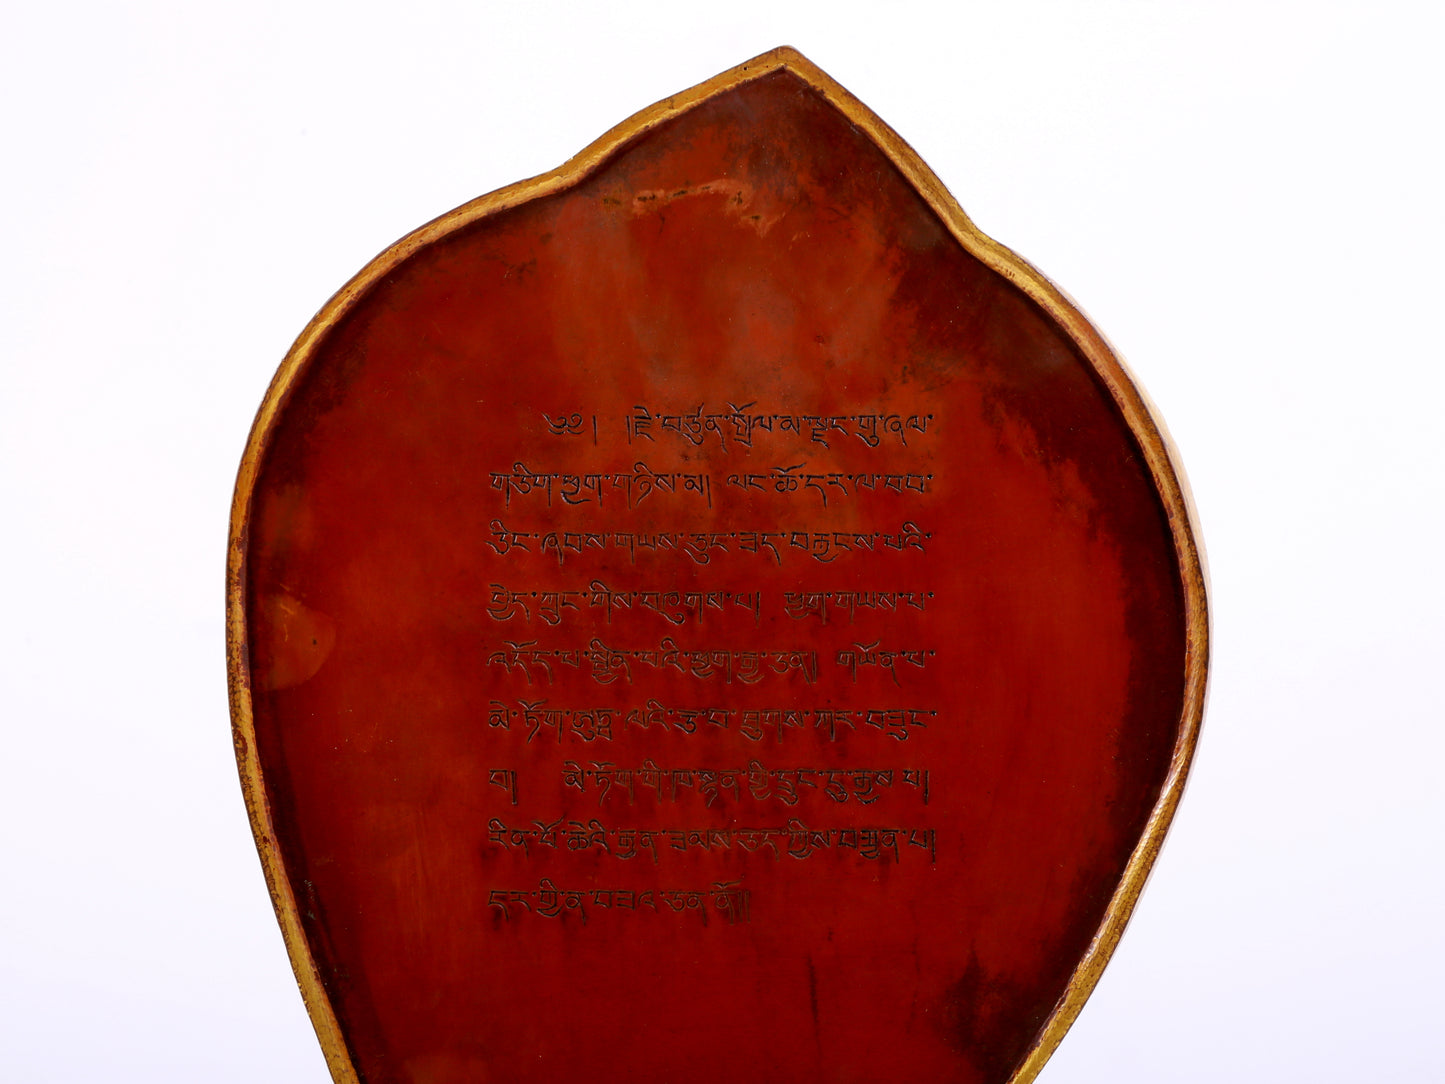 ༄༅། །རྗེ་བཙུན་སྒྲོལ་མ་ལྗང་གུ་ཞལ་
གཅིག་ཕྱག་གཉིས་མ། ལང་ཚོ་དར་ལ་བབ་
ཅིང་ཞབས་གཡས་ཅུང་ཟད་བརྐྱངས་པའི་
ཕྱེད་ཀྲུང་གིས་བཞུགས་པ། ཕྱག་གཡས་པ་
འདོད་པ་སྦྱིན་པའི་ཕྱག་རྒྱ་ཅན། གཡོན་པ་
མེ་ཏོག་ཨུཏྤ་ལའི་རྩ་བ་ཐུགས་ཀར་བཟུང་
བ། མེ་ཏོག་གི་ཁ་སྙན་གྱི་དྲུང་དུ་རྒྱས་པ།
རིན་པོ་ཆེའི་རྒྱན་ཐམས་ཅད་ཀྱིས་བརྒྱན་པ།
དར་གྱི་ན་བཟའ་ཅན་ནོ།།